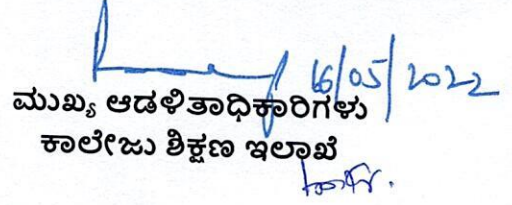 16/05/2022
ಮುಖ್ಯ ಆಡಳಿತಾಧಿಕಾರಿಗಳು
ಕಾಲೇಜು ಶಿಕ್ಷಣ ಇಲಾಖೆ